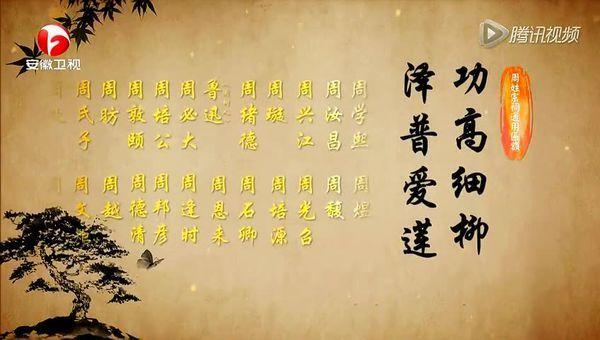 安徽卫视
腾讯视频
周姓宗祠通用匾额
功高细柳
泽普爱莲
周学熙
周汝昌
周兴江
周璇
周绪德
鲁迅
周必大
周培公
周敦颐
周昉
周氏子
周煜
周馥
周光召
周培源
周石卿
周恩来
周逢时
周邦彦
周德清
周越
周文